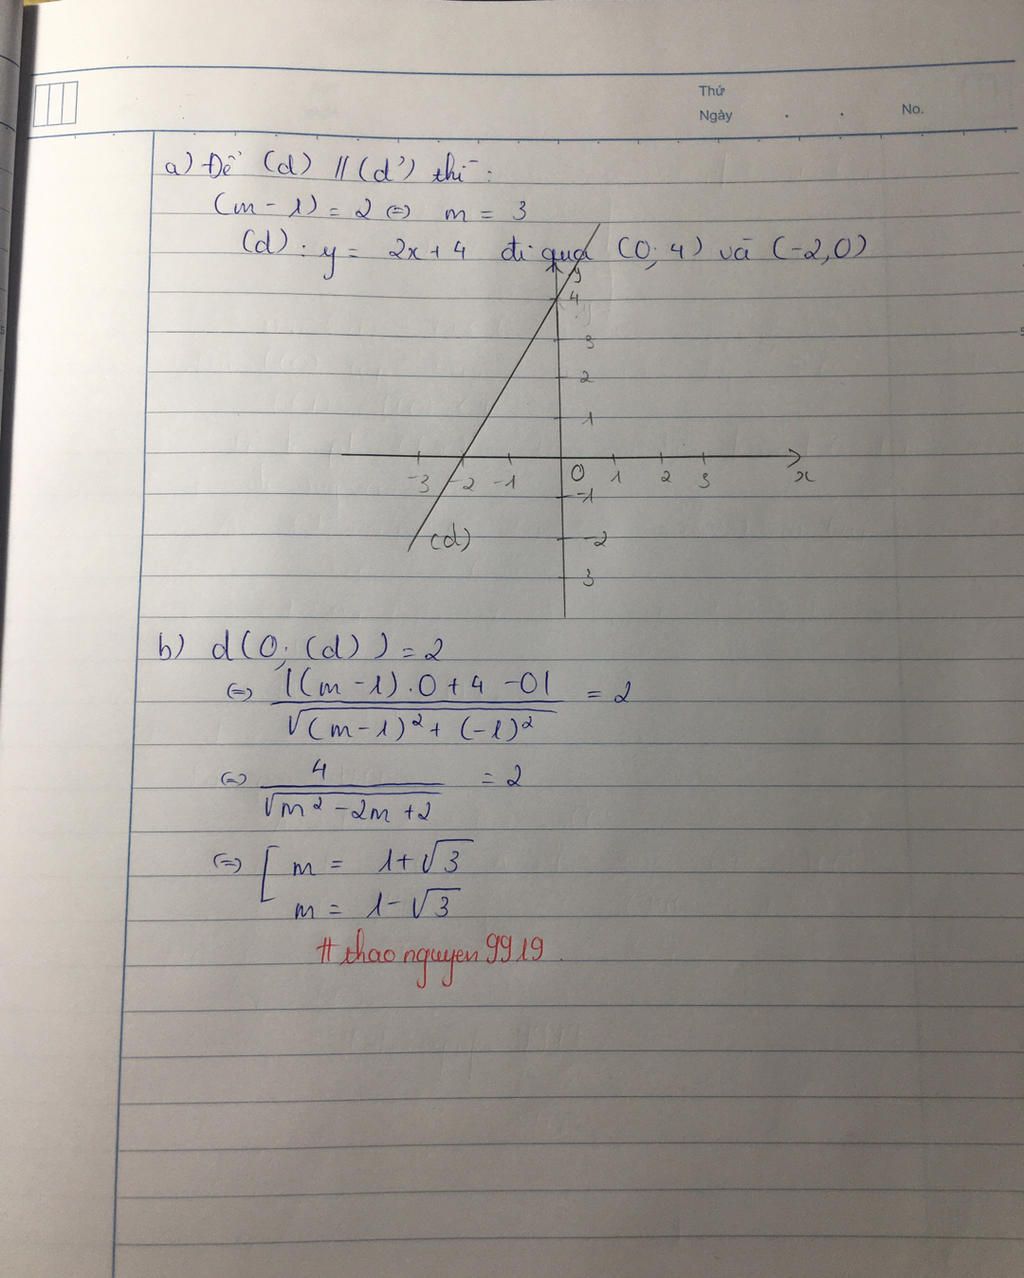 Thứ
Ngày . . No.
a) Để (d) // (d') thì :
(m - 1) = 2 (=) m = 3
(d) : y = 2x + 4 đi qua (0; 4) và (-2,0)
y
4
3
2
1
-3 -2 -1 0 1 2 3 x
-1
(d) -2
3
b) d(0; (d)) = 2
(=) |(m - 1) . 0 + 4 - 0| / √(m - 1)² + (-1)² = 2
(=) 4 / √m² - 2m + 2 = 2
(=) [ m = 1 + √3
m = 1 - √3
# thao nguyen 9919 .